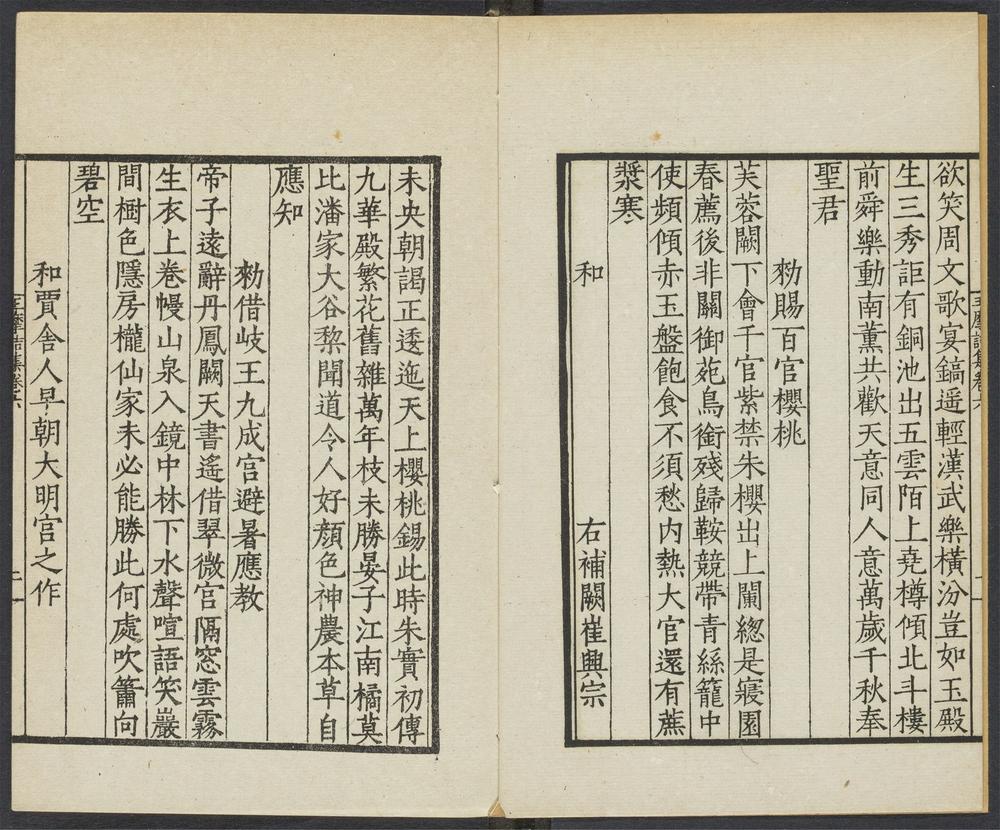 欲笑周文歌宴鎬遥輕漢武樂橫汾豈如玉殿
生三秀詎有銅池出五雲陌上堯樽傾北斗樓
前舜樂動南薰共歡天意同人意萬歲千秋奉
聖君
勑賜百官櫻桃
芙蓉闕下會千官紫禁朱櫻出上闌總是寢園
春薦後非關御苑鳥銜殘歸鞍競帶青絲籠中
使頻傾赤玉盤飽食不須愁内熱大官還有蔗
漿寒
和 右補闕崔興宗
未央朝謁正逶迤天上櫻桃錫此時朱實初傳
九華殿繁花舊雜萬年枝未勝晏子江南橘莫
比潘家大谷棃聞道令人好顔色神農本草自
應知
勑借岐王九成宮避暑應教
帝子遠辭丹鳳闕天書遙借翠微宮隔窓雲霧
生衣上卷幔山泉入鏡中林下水聲喧語笑巖
間樹色隱房櫳仙家未必能勝此何處吹簫向
碧空
和賈舍人早朝大明宮之作